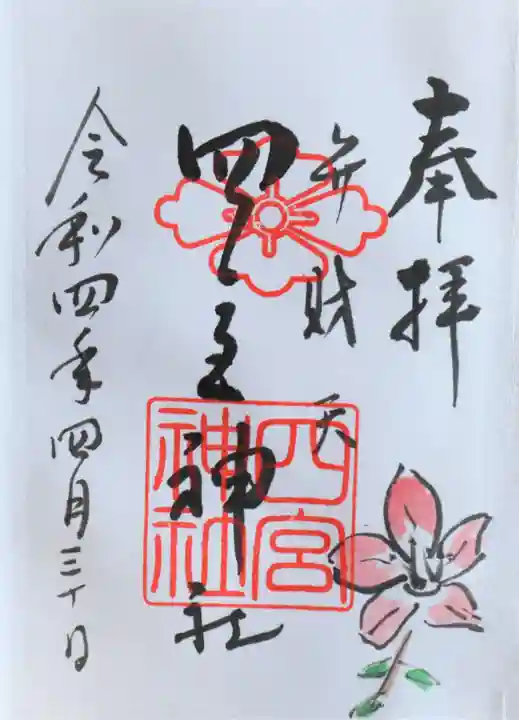 奉拝
弁財天
四宮神社
四宮
神社
令和四年四月三十日